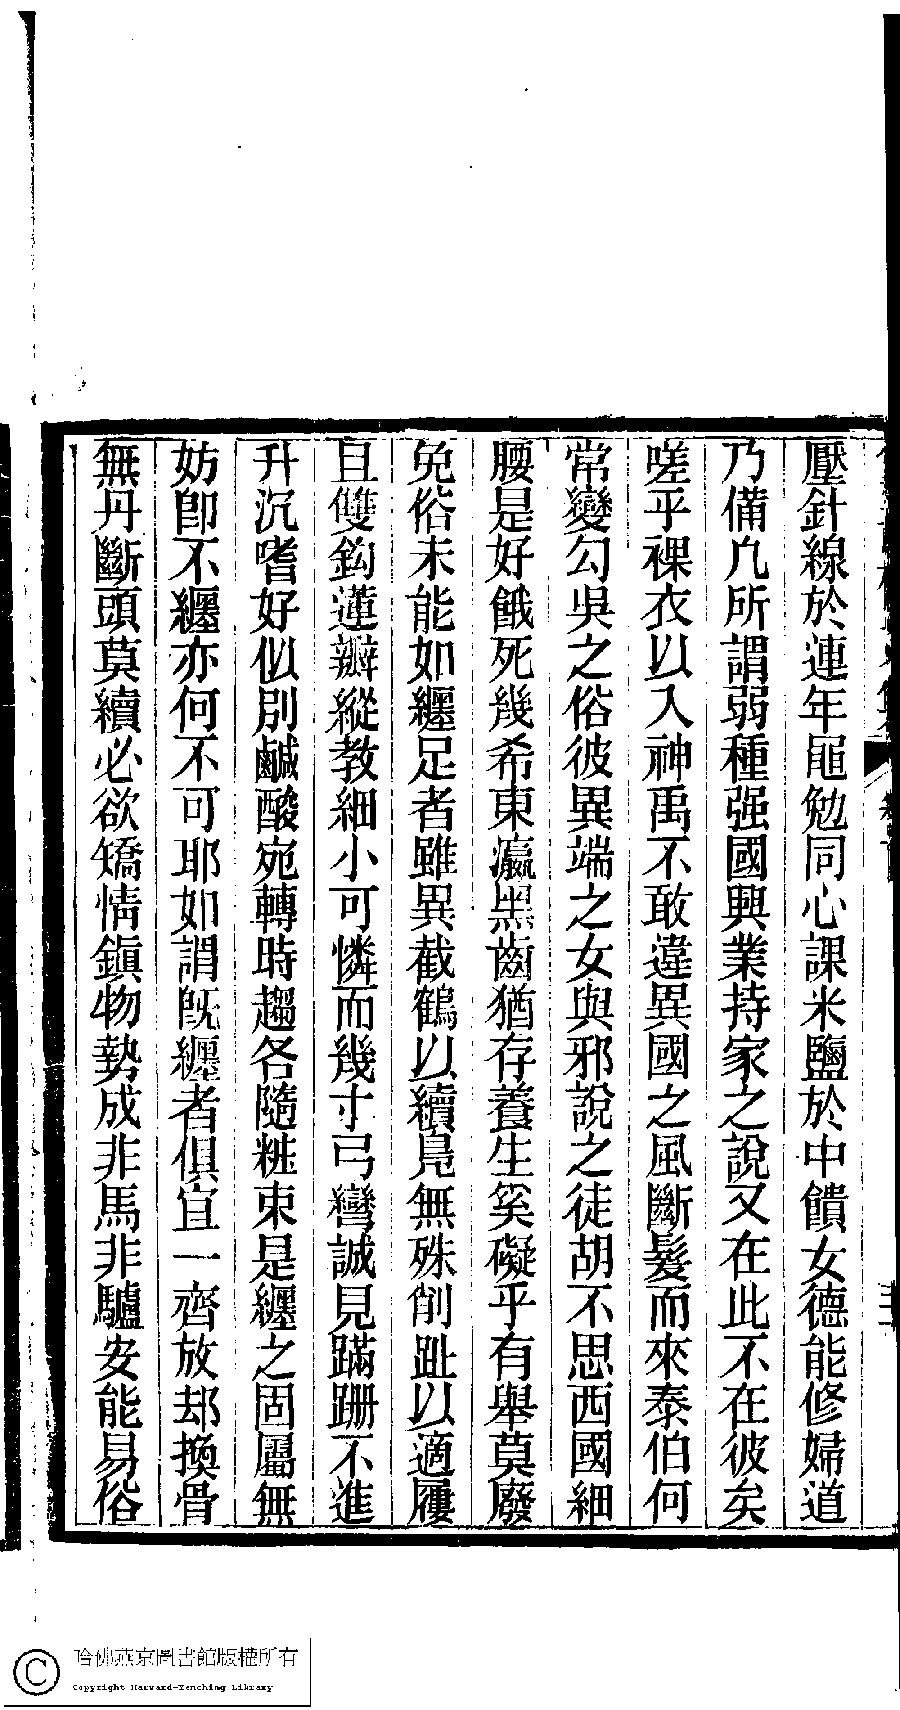 壓針線於連年黽勉同心課米鹽於中饋女德能修婦道
乃備凢所謂弱種强國興業持家之說又在此不在彼矣
嗟乎裸衣以入神禹不敢違異國之風斷髮而來泰伯何
常變勾吳之俗彼異端之女與邪說之徒胡不思西國細
腰是好餓死幾希東瀛黑齒猶存養生奚礙乎有舉莫廢
免俗未能如纒足者雖異截鶴以續鳧無殊削趾以適屨
且雙鈎蓮瓣縱教細小可憐而幾寸弓彎誠見蹣跚不進
升沉嗜好似別鹹酸宛轉時趨各隨粧束是纒之固屬無
妨卽不纒亦何不可耶如謂旣纒者俱宜一齊放却換骨
無丹斷頭莫續必欲矯情鎭物勢成非馬非驢安能易俗
哈佛燕京圖書館版權所有
Copyright Harvard-Yenching Library